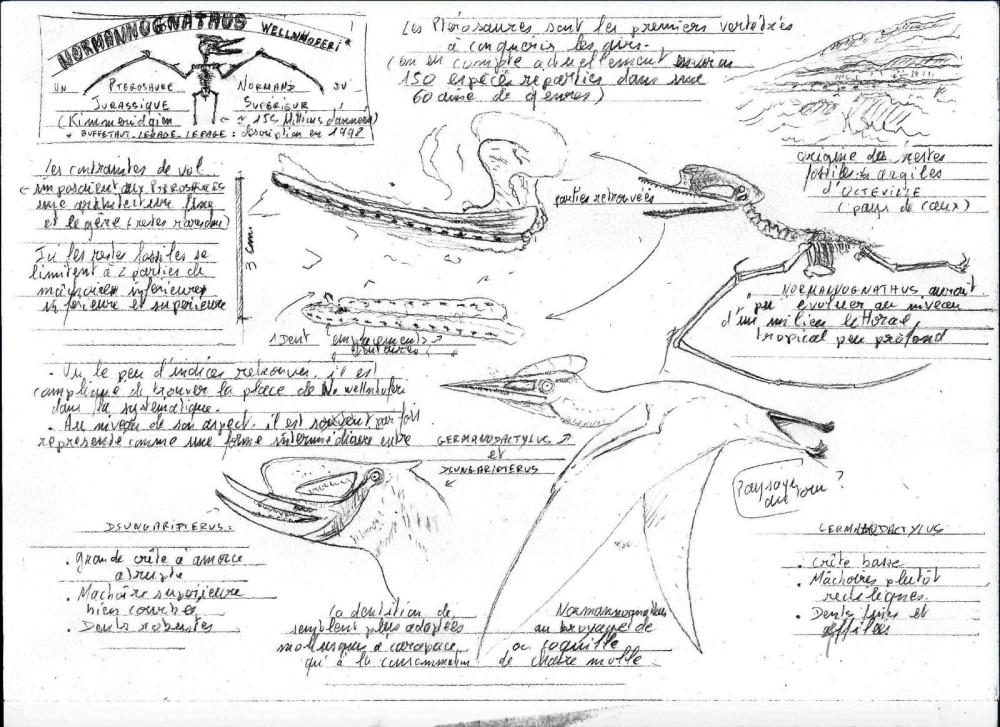 NORMANNOGNATHUS WELLNHOFERI*
UN PTEROSAURE NORMAND DU
JURASSIQUE SUPERIEUR
(Kimmeridgien ≈ 150 Millions d'années)
* BUFFETAUT-LEPAGE-LEPAGE : description en 1998
Les Ptérosaures sont les premiers vertébrés
à conquérir les airs.
(on en compte actuellement environ
150 espèces reparties dans une
60aine de genres)
origine des restes
fossiles : argiles
d'OCTEVILLE
(pays de caux)
Les contraintes de vol
imposaient aux PTEROSAURES
une architecture fine
et légère (restes rares)
Ici les restes fossiles se
limitent à 2 parties de
mâchoires
inférieure et supérieure
3 cm
parties retrouvées
1 Dent
emplacements
dentaires
NORMANNOGNATHUS aurait
pu évoluer au niveau
d'un milieu littoral
tropical peu profond
- Vu le peu d'indices retrouvés, il est
compliqué de trouver la place de N. wellnhoferi
dans la systématique.
- Au niveau de son aspect, il est souvent parfois
représenté comme une forme intermédiaire entre
GERMANODACTYLUS
et
DSUNGARIPTERUS
Paysage
au sou ?
DSUNGARIPTERUS :
. Grande crête à amorce
abrupte
. Machoire superieure
bien courbée
. Dents robustes
GERMANODACTYLUS
. crête basse
. Mâchoires plutôt
rectilignes.
. Dents fines et
effilées
La dentition de Normannognathus
semblent plus adaptées au broyage de
mollusques à carapace ou coquille
qu'à la consommation de chaire molle.